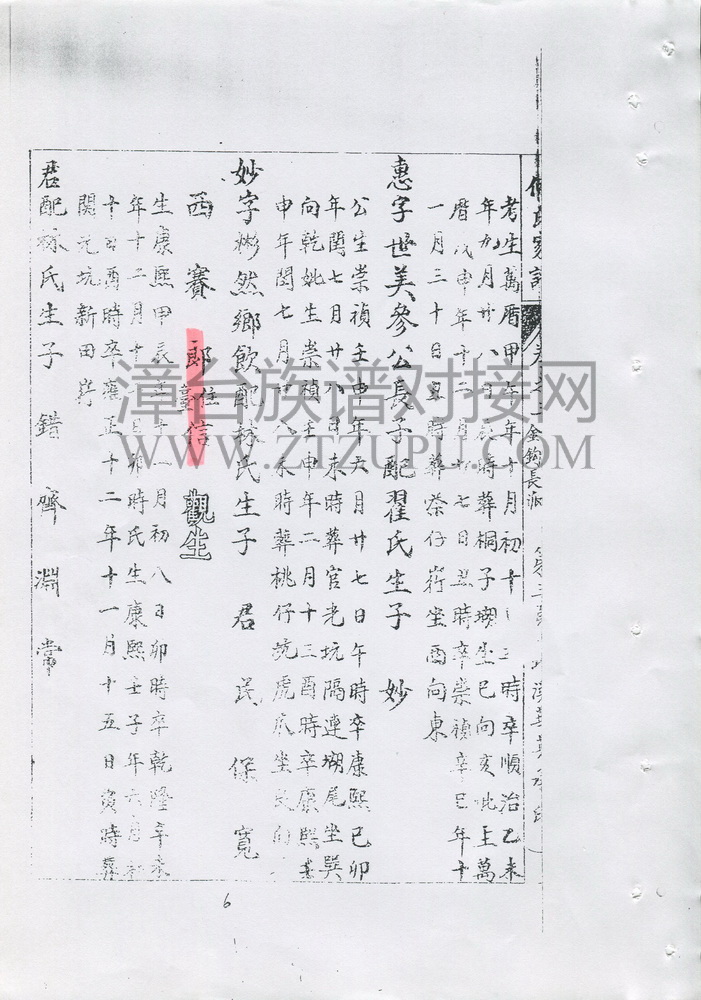 考生萬曆甲午年十月初十三時卒順治己未
年九月廿八日時葬桐子坳坐巳向亥妣生萬
曆戊申年十二月廿七日丑時卒崇禎辛巳年十
一月三十日時葬仔坐酉向東
惠字世美參公長子配翟氏生子 妙
公生崇禎壬申年六月廿七日午時卒康熙己卯
年閏七月廿八日未時葬官光坑隔連坳尾坐巽
向乾妣生崇禎壬申年二月十三酉時卒康熙
申年閏七月廿八未時葬桃仔坑虎爪坐向
妙字彬然鄉飲配林氏生子 君 民 保 寬
西 賽 郎 信 觀生
住臺
生康熙甲辰年十一月初八日卯時卒乾隆辛未
年十二月十日卯時氏生康熙壬子年六月
十日酉時卒雍正十二年十一月十五日寅時葬
関光坑新田
君配林氏生子 錯 齊 淵 常
金鈎長派
漳台族谱对接网
WWW.ZTZUPU.COM
6